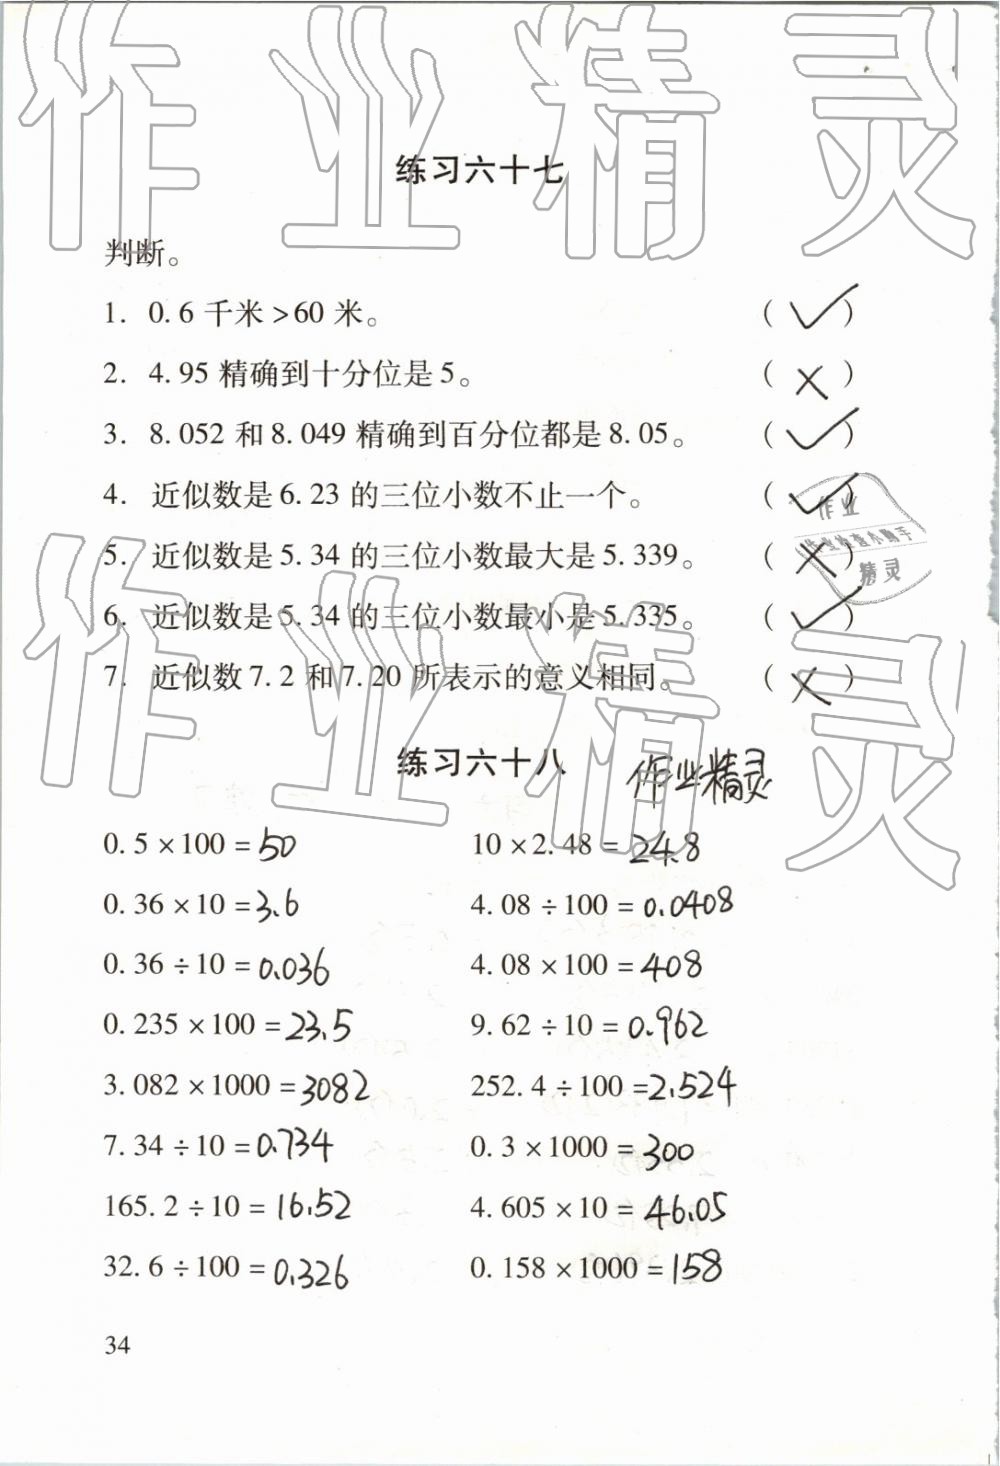 作业精灵
练习六十七
判断。
1. 0.6 千米 >60 米。 (✓)
2. 4.95 精确到十分位是 5。 (×)
3. 8.052 和 8.049 精确到百分位都是 8.05。 (✓)
4. 近似数是 6.23 的三位小数不止一个。 (✓)
作业
作业检查小助手
精灵
5. 近似数是 5.34 的三位小数最大是 5.339。 (×)
6. 近似数是 5.34 的三位小数最小是 5.335。 (✓)
7. 近似数 7.2 和 7.20 所表示的意义相同。 (×)
作业精灵
练习六十八 作业精灵
0.5 ×100 = 50 10 ×2.48 = 24.8
0.36 ×10 = 3.6 4.08 ÷100 = 0.0408
0.36 ÷10 = 0.036 4.08 ×100 = 408
0.235 ×100 = 23.5 9.62 ÷10 = 0.962
3.082 ×1000 = 3082 252.4 ÷100 = 2.524
7.34 ÷10 = 0.734 0.3 ×1000 = 300
165.2 ÷10 = 16.52 4.605 ×10 = 46.05
32.6 ÷100 = 0.326 0.158 ×1000 = 158
34